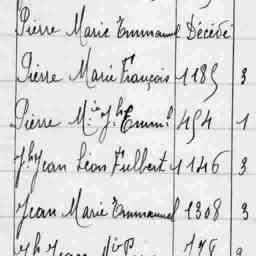 Pierre Marie Emmanuel Décédé
Pierre Marie François 1185 3
Pierre M.ie Jh Emm.l 454 1
Jh Jean Léon Fulbert 1146 3
Jean Marie Emmanuel 1308 3
Jh Jean M.ie